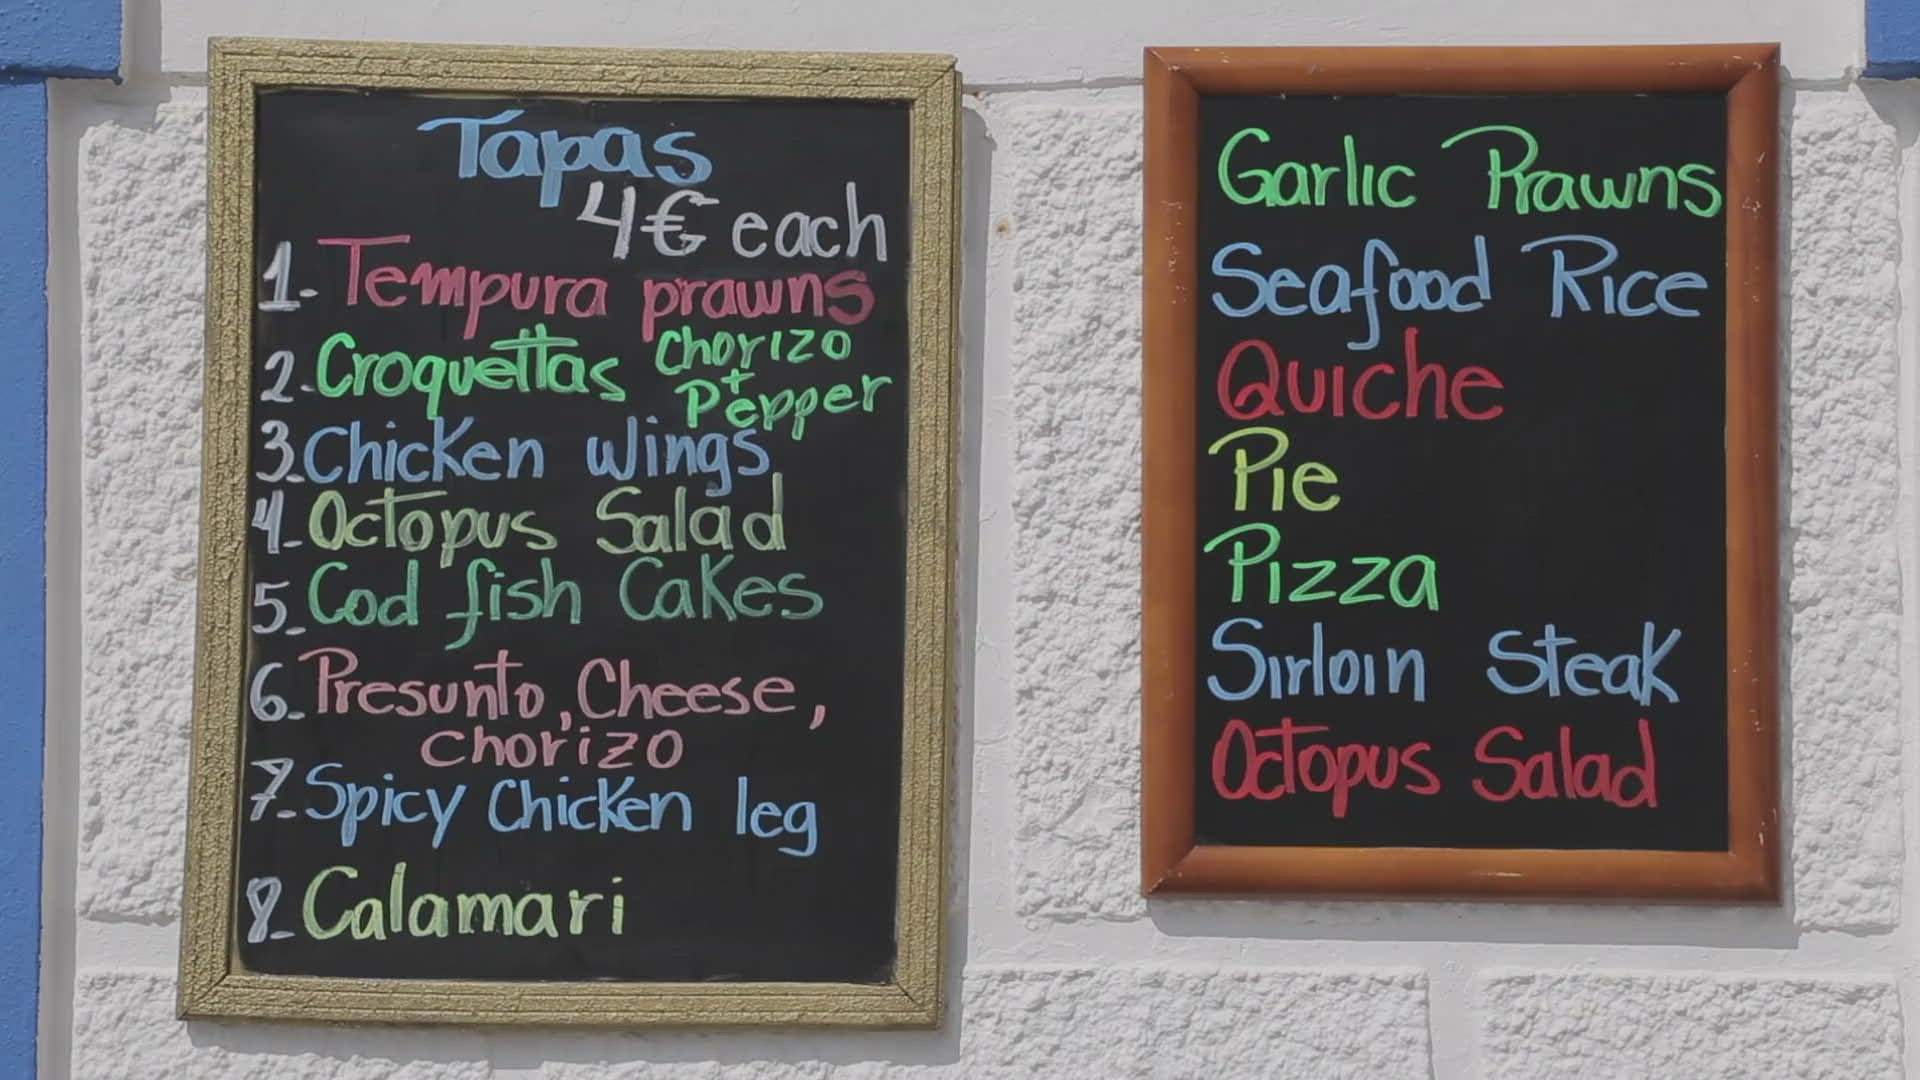 Tapas
4€ each
1- Tempura prawns
2- Croquettas Chorizo
+
Pepper
3. Chicken wings
4- Octopus Salad
5- Cod fish Cakes
6- Presunto, Cheese,
Chorizo
7- Spicy Chicken leg
8- Calamari
Garlic Prawns
Seafood Rice
Quiche
Pie
Pizza
Sirloin Steak
Octopus Salad